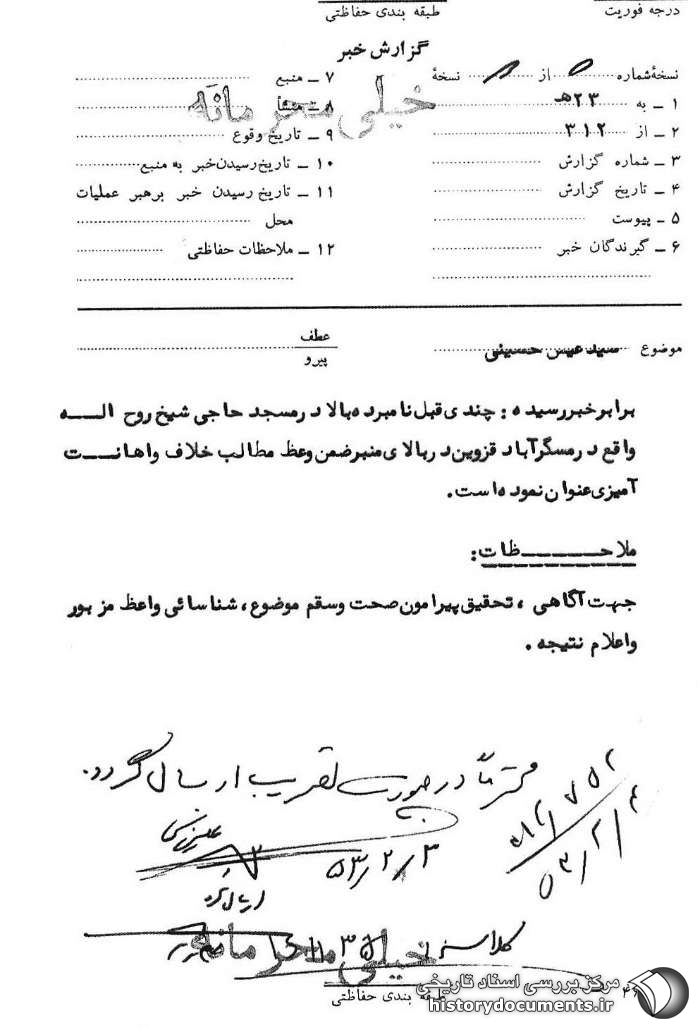 درجه فوریت
طبقه بندی حفاظتی
گزارش خبر
نسخهٔ شماره ........ از ........ نسخهٔ
۱ ــ به ۲۳ هـ
۲ ــ از ۳۱۲
۳ ــ شماره گزارش
۴ ــ تاریخ گزارش
۵ ــ پیوست
۶ ــ گیرندگان خبر
۷ ــ منبع
۸ ــ منشأ
۹ ــ تاریخ وقوع
۱۰ ــ تاریخ رسیدن خبر به منبع
۱۱ ــ تاریخ رسیدن خبر برهبر عملیات
محل
۱۲ ــ ملاحظات حفاظتی
خیلی محرمانه
موضوع سید عیسی حسینی
عطف
پیرو
برابر خبر رسیده : چندی قبل نامبرده بالا در مسجد حاجی شیخ روح الــه
واقع در مسگرآباد قزوین در بالای منبر ضمن وعظ مطالب خلاف و اهانــت
آمیزی عنوان نموده است .
ملاحــــظات :
جهت آگاهی ، تحقیق پیرامون صحت و سقم موضوع ، شناسائی واعظ مزبور
و اعلام نتیجه .
در صورت تصویب ارسال گردد.
۵۳/۲/۳
۵۳/۲/۴
ارسال گردد
خیلی محرمانه
طبقه بندی حفاظتی
مرکز بررسی اسناد تاریخی
historydocuments.ir